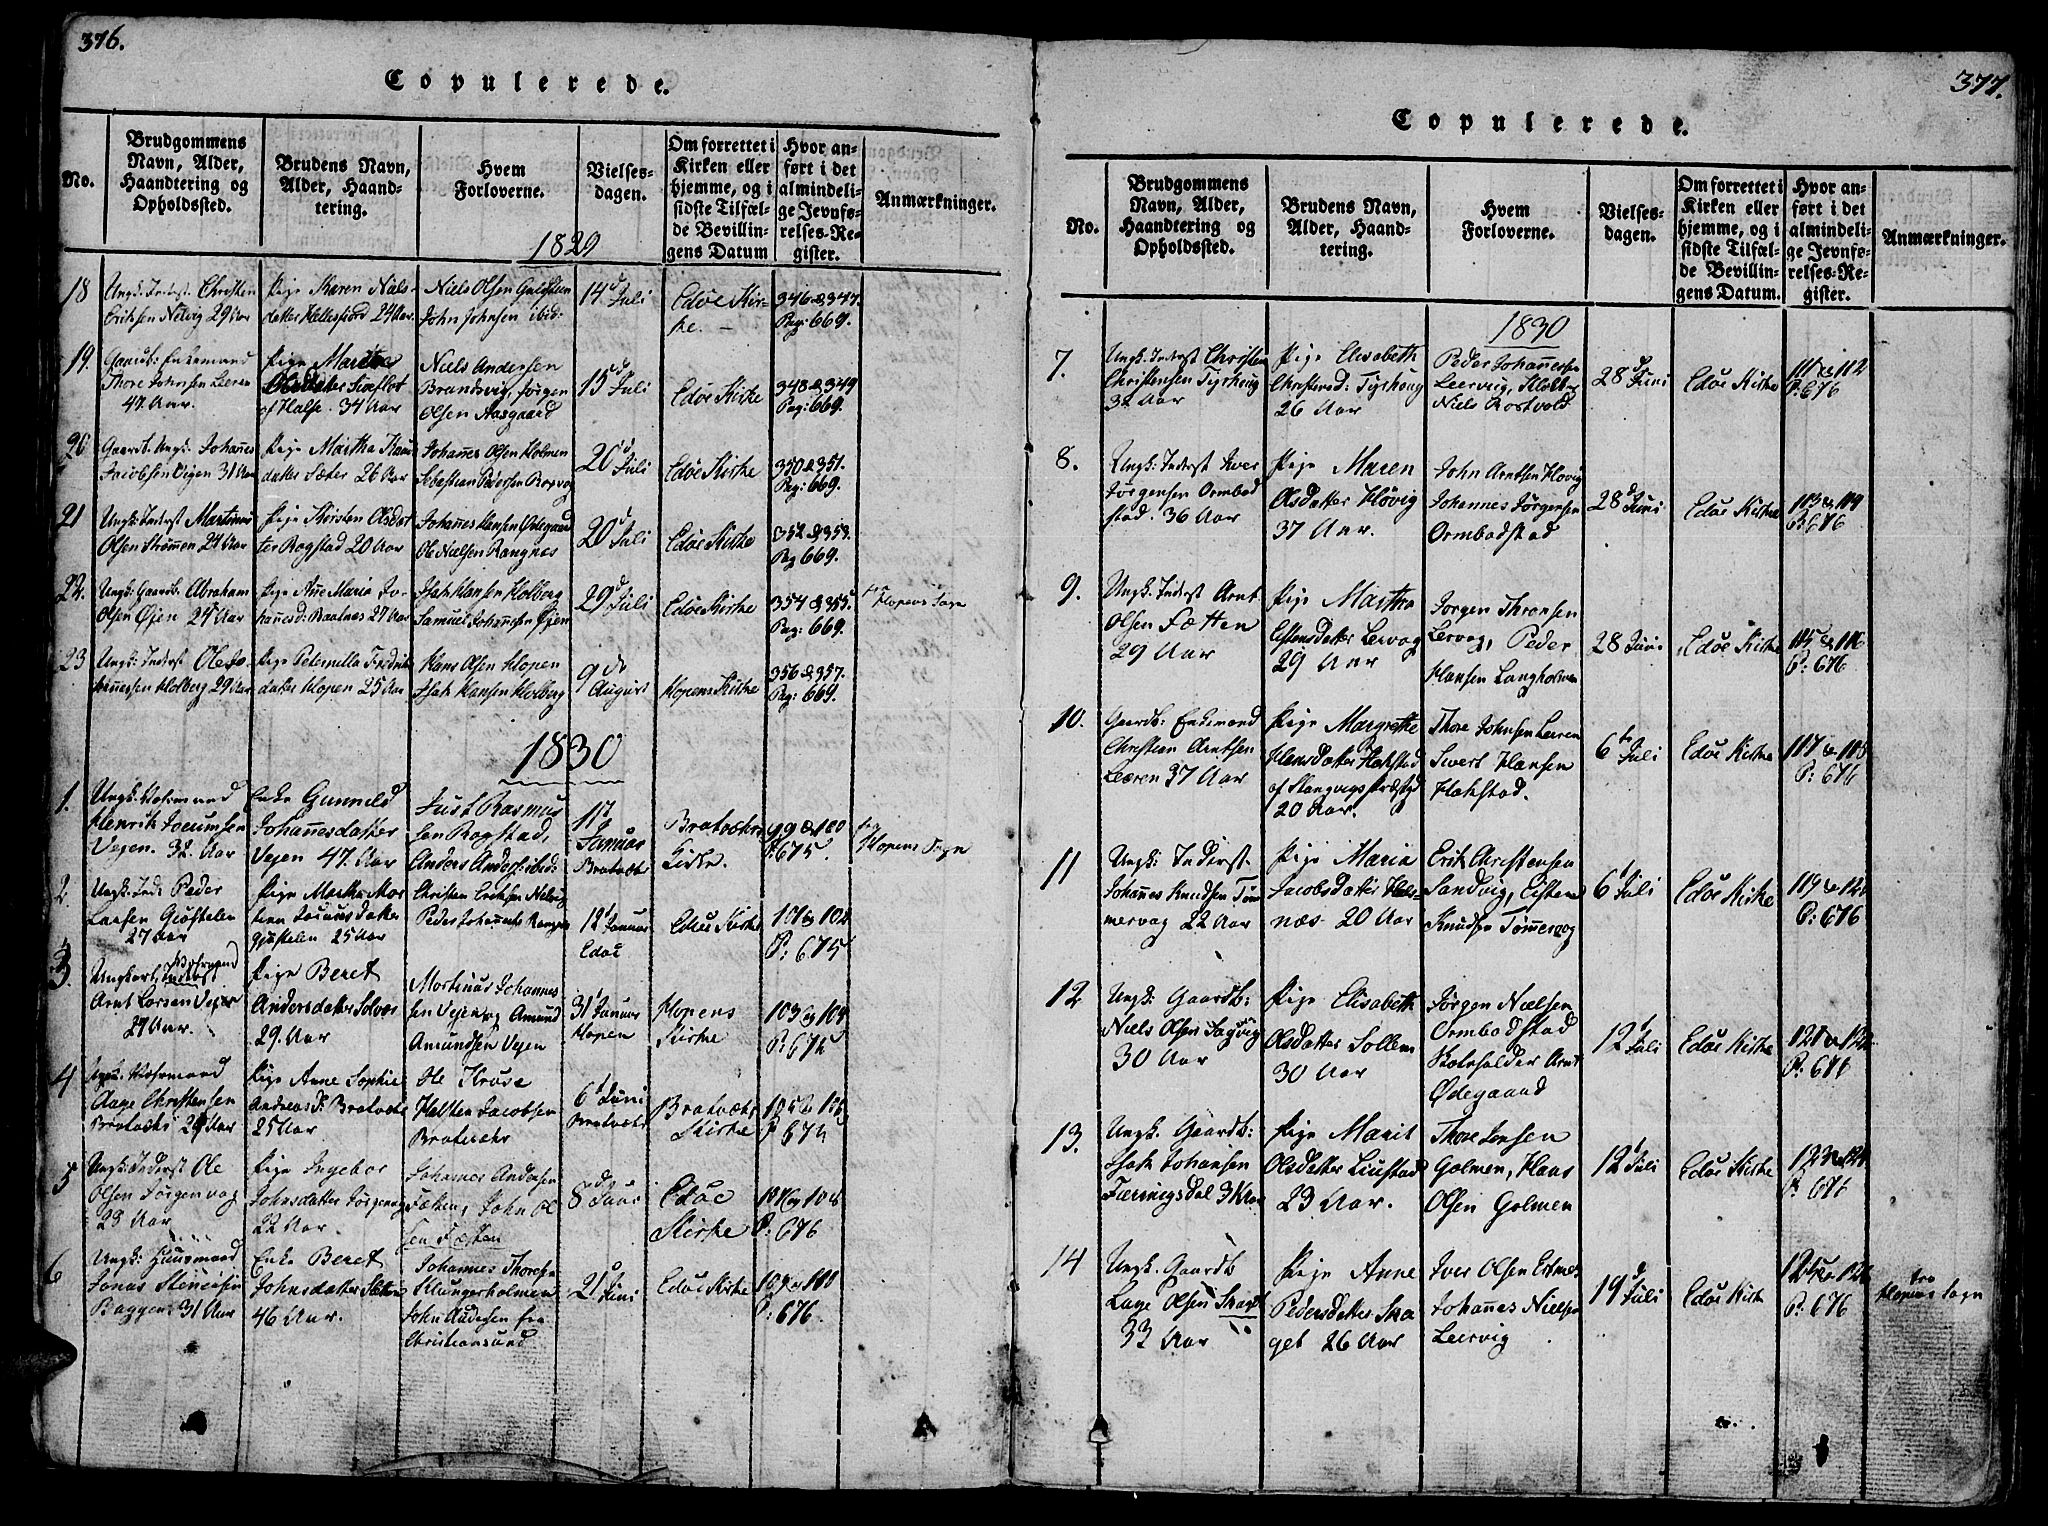 376.
Copulerede.
No.
Brudgommens
Navn, Alder,
Haandtering og
Opholdssted.
Brudens Navn,
Alder, Haand-
tering.
Hvem
Forloverne.
Vielses-
dagen.
Om forrettet i
Kirken eller
hjemme, og i
sidste Tilfæl-
de Bevillin-
gens Datum
Hvor an-
ført i det
almindeli-
ge Jevnfø-
relses-Re-
gister.
Anmærkninger.
1829
18
Ungk: Inderst. Christen
Eriksen Nelvig 29 Aar
Pige Karen Niels-
datter Hellesfiord 24 Aar
Niels Olsen
John Johnsen ibid:
14 d Juli
Edøe Kir-
ke. –
346 & 347.
Pag: 669.
19.
Gaardb: Enkemand
Thore Johnsen Leeren
47 Aar.
Pige
af Halse. 34 Aar
Niels Andersen
Brandsvig, Jørgen
Olsen Aasgaard
15 d Juli
Edøe Kirke
348 & 349
Pag: 669.
20
Gaardb. Ungk. Johannes
Jacobsen 31 Aar
Pige Martha
datter Sæter 26 Aar
Johannes Olsen Holmen
Sebastian Pedersen
20 d Juli
Edøe Kirke
350 & 351.
Pag: 669.
21
Ungk: Inderst Martinus
Olsen Strømen 24 Aar
Pige Kirsten Olsdat-
ter Rogstad 20 Aar
Johannes Hansen Ødegaard
Ole Nielsen Rangnæs
20 d Juli
Edøe Kirke
352 & 353.
Pag 669.
22.
Ungk: Gaardb. Abraham
Olsen Øjen 24 Aar
Pige Ane Maria Jo-
hannesd: 27 Aar
Isak Hansen Holberg
Samuel Johannesen Øjen
29 d Juli
Edøe Kirke
354 & 355.
Pag: 669.
fra Hopens Sogn
23
Ungk: Inderst Ole Jo-
hannessen Holberg 29 Aar
Pige Peternilla Fredrik
datter Hopen 25 Aar
Hans Olsen Hopen
Isak Hansen Holberg
9 de
August
Hopens Kirke
356 & 357.
Pag: 669.
1830
1.
Henrik Jocumsen
Vejen. 32. Aar
Enke Gunnild
Johannesdatter
Vejen 47. Aar
Just Rasmus
sen Rogstad,
Anders Anders: ibid:
17
Januar
Bratvær
Bratværs
Kirke.
99 & 100
P: 675.
fra
Hopens Sogn
2.
Ungk: Ind: Peder
Larsen Giøstelen
27 Aar
Pige Martha
gjøstelen 25 Aar
Christen Eriksen Nelvig
12 Januar
Edøe
Edøe Kirke
101 & 102
P: 675
3.
Arnt Larsen Vejen
27 Aar.
Pige Beret
Andersdatter Solvær
29. Aar
Martinus Johannes
sen Vejen og Amund
Amundsen Vejen
31 Januar
Hopen
Hopens
Kirke
103 & 104
P: 675
4
Aage Christensen
Bratvær 29 Aar
Pige Anne Sophie
Andreas D. Bratvær
25 Aar.
Ole Kruse
Halsten Jacobsen
Bratvær
6 Juni
Bratvær
Bratværs
Kirke
105 & 106
P 675
5
Ungk: Inderst Ole
Olsen Jørgenvog
23 Aar
Pige Ingebor
Johnsdatter Jørgenvog
22 Aar.
Johannes Andersen
Fætten, John Ol
sen Fætten
8 d Juni
Edøe
Kirke
107 & 108
P: 676
6
Ungk: Huusmand
Jonas Steneisen
Baggen: 31 Aar
Enke Beret
Johnsdatter
46 Aar.
Johannes Thoresen
Allungerholmen
John Andersen fra
Christiansund
21 d Juni
Edøe Kirke
109 & 110
P: 676.
377.
Copulerede.
No.
Brudgommens
Navn, Alder,
Haandtering og
Opholdssted.
Brudens Navn,
Alder, Haand-
tering.
Hvem
Forloverne.
Vielses-
dagen.
Om forrettet i
Kirken eller
hjemme, og i
sidste Tilfæl-
de Bevillin-
gens Datum.
Hvor an-
ført i det
almindeli-
ge Jevnfø-
relses-Re-
gister.
Anmærkninger.
1830
7.
Ungk: Inderst Christen
Christensen Tyrhoug
Aar
Pige Elisabeth
Christensd: Tyrhoug
26 Aar
Peder Johannessen
Leervig,
Niels Rostvold
28 d Juni
Edøe Kirke
111 & 112
P: 676
8.
Ungk: Inderst Iver
Jørgensen Ormbod
stad. 36 Aar
Pige Maren
Olsdatter Høvig
37 Aar.
John Arntsen Høvig
Johannes Jørgensen
Ormbodstad
28 d Juni
Edøe Kirke
113 & 114
P: 676
9.
Ungk: Inderst Arnt
Olsen Fætten
29 Aar
Pige Martha
Estensdatter Lervog
29 Aar
Jørgen Thronsen
Lervog, Peder
Hansen Langholmen
28 Juni
Edøe Kirke
115 & 116
P: 676
10.
Gaardb: Enkemand
Christian Arntsen
Leeren 37 Aar
Pige Margrethe
Hansdatter Halstad
af Stangvigs Præstgd
20 Aar.
Thore Johnsen Leeren
Siwert Hansen
Halstad.
6 te Juli
Edøe Kirke
117 & 118
P: 676
11
Ungk: Inderst.
Johannes Knudsen Tøm
mervog 22 Aar
Pige Maria
Jacobsdatter Hals-
næs 20 Aar
Erik Christensen
Sandvig, Eisten
Knudsen Tømmervog
6 Juli
Edøe Kirke
119 & 120
P: 676
12
Ungk: Gaardb:
Niels Olsen Sagvig
30 Aar
Pige Elisabeth
Olsdatter Sollem
30 Aar
Jørgen Nielsen
Ormbodstad
Arnt
Ødegaard
12 Juli
Edøe Kirke
121 & 122
P: 676
13.
Ungk. Gaardb:
Isak Johansen
Færingsdal Aar
Pige Marit
Olsdatter Liustad
23 Aar.
Thore Jensen
Golmen, Hans
Olsen Golmen
12 Juli
Edøe Kirke
123 & 124
P: 676
14
Ungk. Gaardb
Lage Olsen Skaget
33 Aar
Pige Anne
Pedersdatter Ska
get 26 Aar
Iver Olsen Ednes
Johannes Nielsen
Leervig
19 d Juli
Edøe Kirke
125 & 126
P: 676
fra
Hopens Sogn